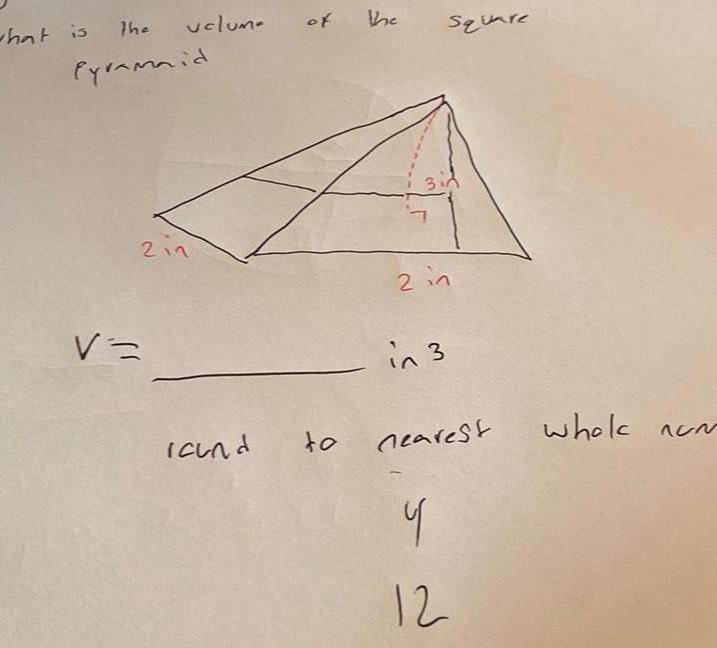 what is the volume of the square
Pyramaid
3 in
2 in
2 in
V = ____________ in 3
round to nearest whole num
4
12